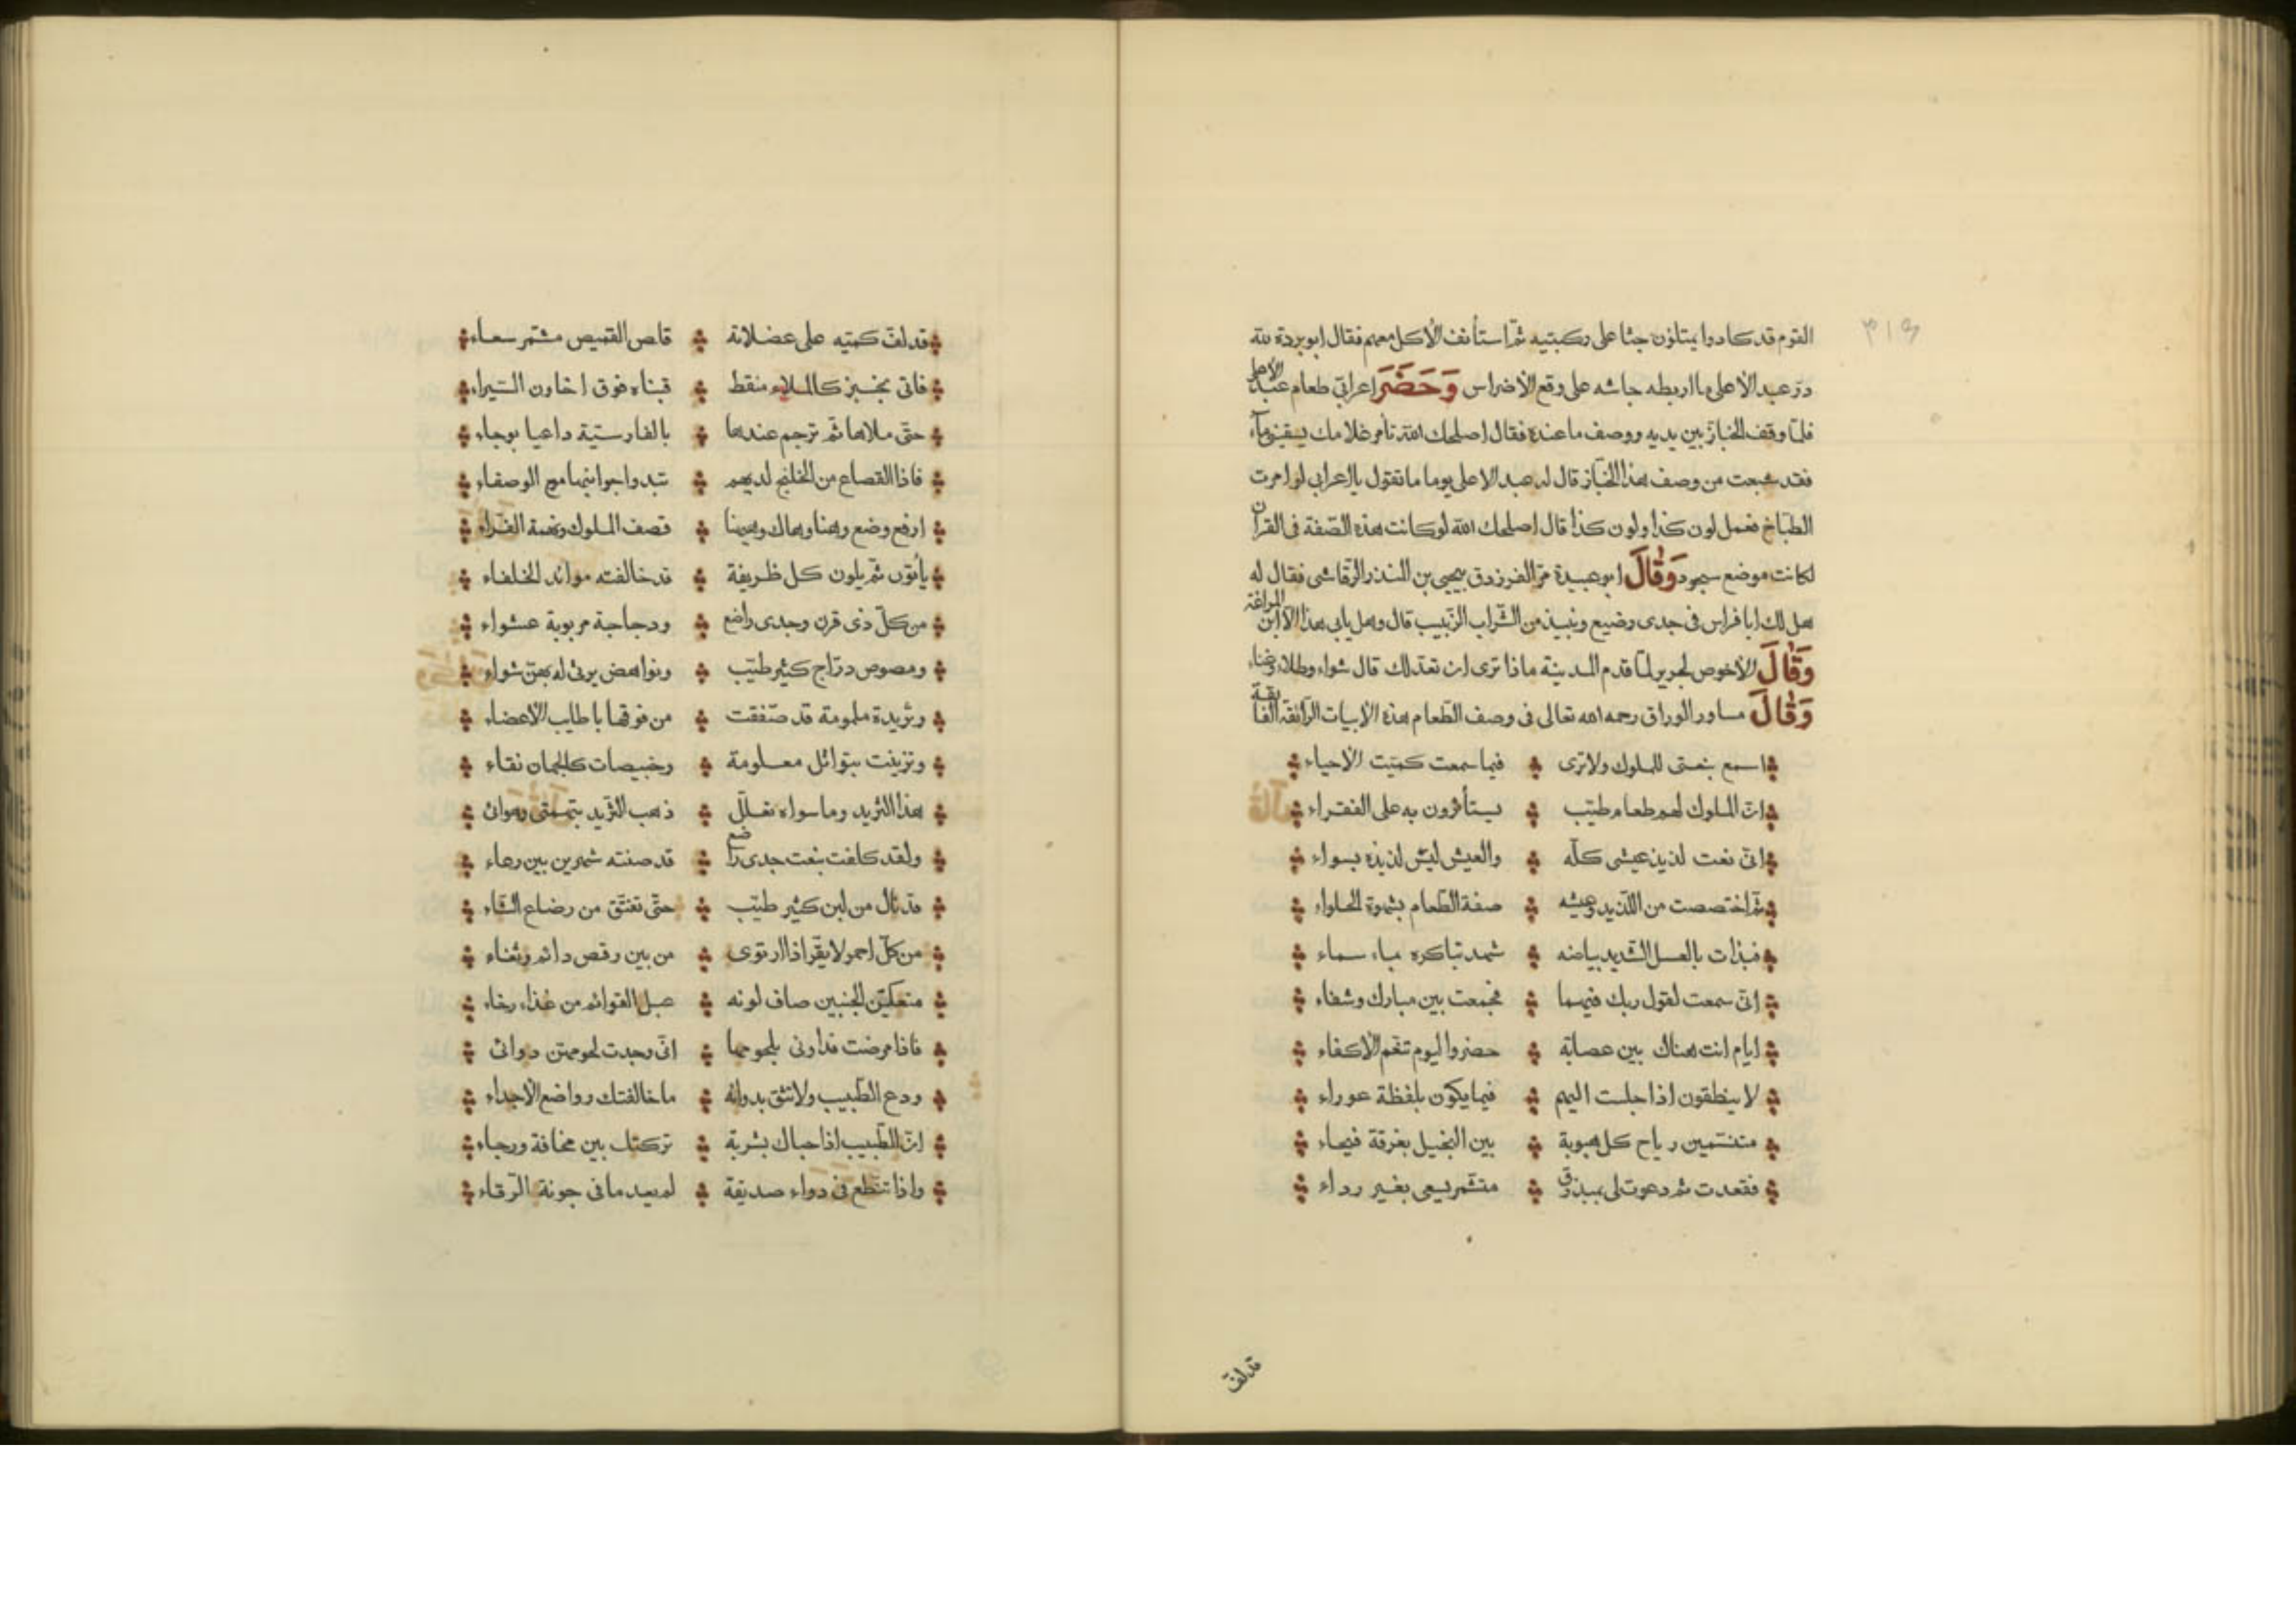 القوم قد كادوا يمتلؤن جثا على ركبتيه ثم استأنف الأكل معهم فقال ابو بردة لله
در عبد الأعلى ما اربطه جاشه على وقع الأضراس وَحَضَرَ اعرابي طعام عبد الأعلى
فلما وقف الخباز بين يديه ووصف ما عنده فقال اصلحك الله تأمر غلامك يسقيني ماء
فقد شبعت من وصف هذا الخباز قال له عبد الاعلى يوما ما تقول يا اعرابي لو امرت
الطباخ فعمل لون كذا ولون كذا قال اصلحك الله لو كانت هذه الصفة في القرآن
لكانت موضع سجود وَقَالَ ابو عبيدة مر الفرزدق بيحيى بن المنذر الرقاشي فقال له
هل لك ابا فراس في جدى رضيع ونبيذ من الشراب الزبيب قال وهل يابى هذا الا ابن المراغة
وَقَالَ الأخوص لجرير لما قدم المدينة ماذا ترى ان نعد لك قال شواء وطلاء وغناء
وَقَالَ مساور الوراق رحمه الله تعالى في وصف الطعام هذه الأبيات الرائقة الفايقة
اسمع بنعتى للملوك ولا ترى فيما سمعت كميت الأحياء
ان الملوك لهم طعام طيب يستأثرون به على الفقراء
انى نعت لذيذ عيشى كله والعيش ليس لذيذه بسواء
ثم اختصصت من اللذيذ وعيشه صفة الطعام بشهوة الحلواء
فبدات بالعسل الشديد بياضه شهد تباكره بماء سماء
انى سمعت لقول ربك فيهما فجمعت بين مبارك وشفاء
ايام انت هناك بين عصابة حضروا ليوم تنعم الأكفاء
لا ينطقون اذا جلست اليهم فيما يكون بلفظة عوراء
متنسمين رياح كل هبوبة بين النخيل بغرفة فيحاء
فقعدت ثم دعوت لى بمبذرق متشمر يسعى بغير رداء
قد لف
قد لف كميه على عضلاته قاص القميص مشمر سعاء
فاتى بخبز كالملاء منقط فبناه فوق اخاون الشيراء
حتى ملاها ثم ترجم عندها بالفارسية داعيا بوحاء
فاذا القصاع من الخلنج لديهم تبدوا جوانبها مع الوصفاء
ارفع وضع وهنا وهاك وههنا قصف الملوك ونعمة القراء
يأتون ثم بلون كل ظريفة قد خالفته موائد الخلفاء
من كل ذى قرن وجدى راضع ودجاجة مربوبة عشواء
ومصوص دراج كثير طيب ونواهض يؤتى لهم بهن شواء
وثريدة ملمومة قد صففت من فوقها باطايب الأعضاء
وتزينت بتوابل معلومة وخبيصات كالجمان نقاء
هذا الثريد وما سواه تعلل ذهب الثريد بنهمتى وهوائى
ولقد كلفت بنعت جدى راضع قد صنته شهرين بين رعاء
قد نال من لبن كثير طيب حتى تفتق من رضاع الشاء
من كل احمر لا يقر اذا ارتوى من بين رقص دائم وثغاء
متعكن الجنبين صاف لونه عبل القوائم من غذاء رخاء
فاذا مرضت فداونى بلحومها انى وجدت لحومهن دوائى
ودع الطبيب ولا تثق بدوائه ما خالفتك رواضع الأجداء
ان الطبيب اذا حباك بشربة تركتك بين مخافة ورجاء
واذا تنطع فى دواء صديقه لم يعد ما فى جونة الرقاء